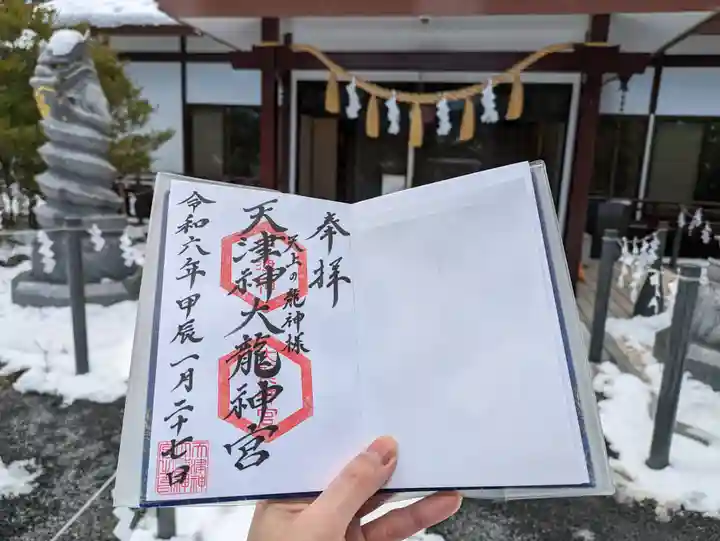 奉拝
天上の龍神様
天津神大龍神宮
令和六年甲辰一月二十七日